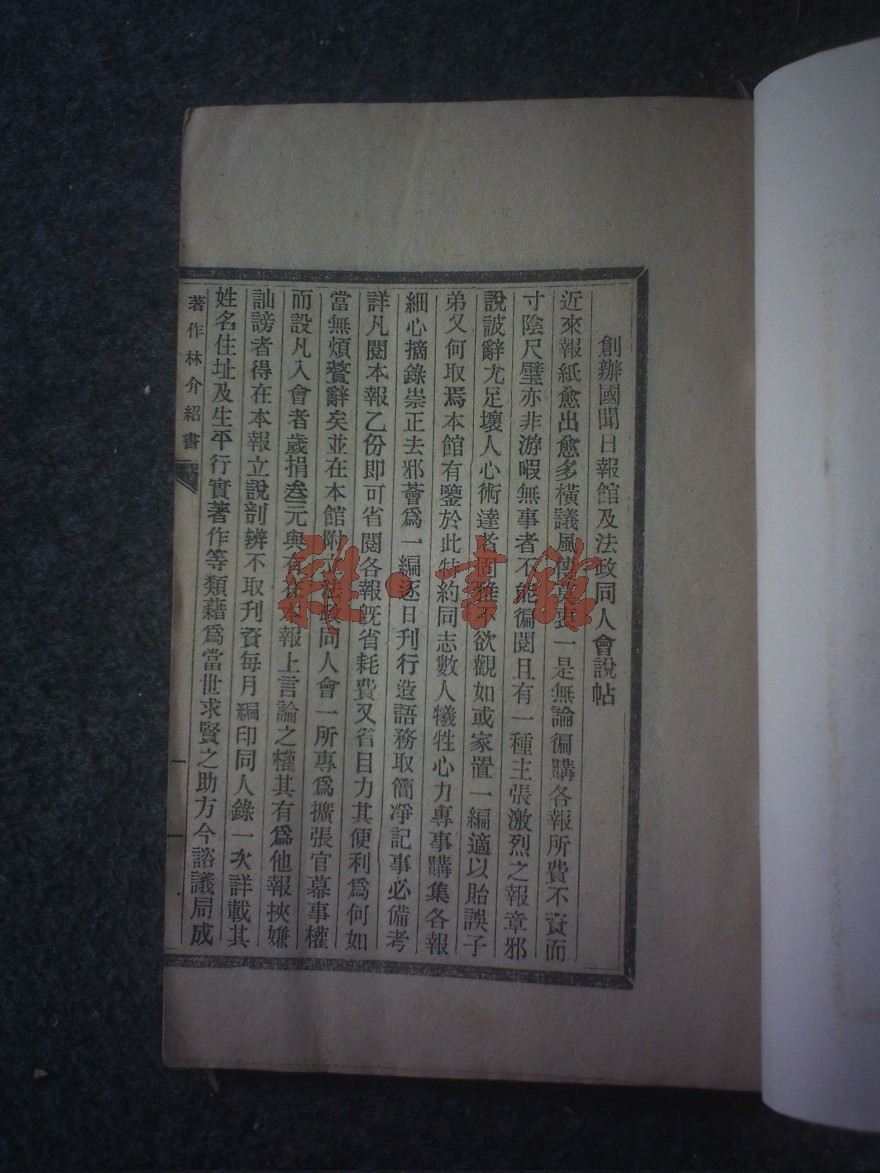 創辦國聞日報館及法政同人會說帖
近來報紙愈出愈多橫議風傳莫衷一是無論徧購各報所費不資而
寸陰尺璧亦非游暇無事者不能徧閱且有一種主張激烈之報章邪
說詖辭尤足壞人心術達者固雅不欲觀如或家置一編適以貽誤子
弟又何取焉本館有鑒於此特約同志數人犧牲心力專事購集各報
細心摘錄崇正去邪薈爲一編逐日刊行造語務取簡凈記事必備考
詳凡閱本報乙份即可省閱各報旣省耗費又省目力其便利爲何如
當無煩贅辭矣並在本館附立法政同人會一所專爲擴張官幕事權
而設凡入會者歲捐叁元與有在本報上言論之權其有爲他報挾嫌
訕謗者得在本報立說剖辨不取刊資每月編印同人錄一次詳載其
姓名住址及生平行實著作等類藉爲當世求賢之助方今諮議局成
著作林介紹書
雜·書館